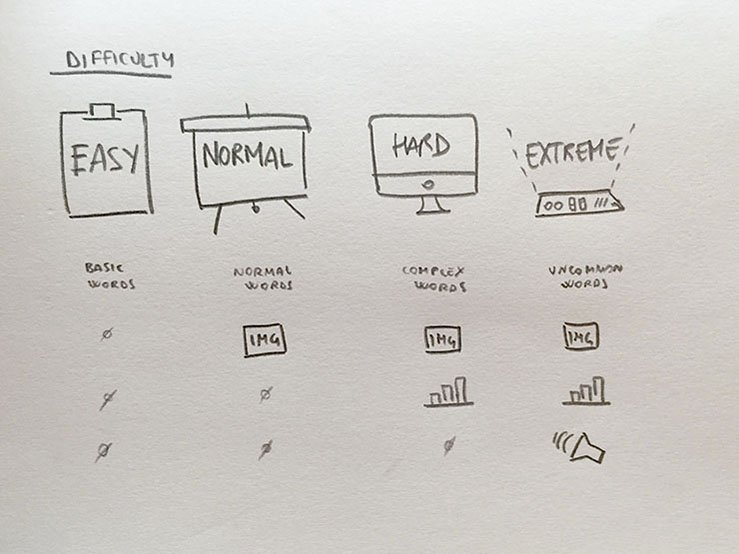 DIFFICULTY
EASY NORMAL HARD EXTREME
BASIC NORMAL COMPLEX UNCOMMON
WORDS WORDS WORDS WORDS
Ø IMG IMG IMG
Ø Ø
Ø Ø Ø